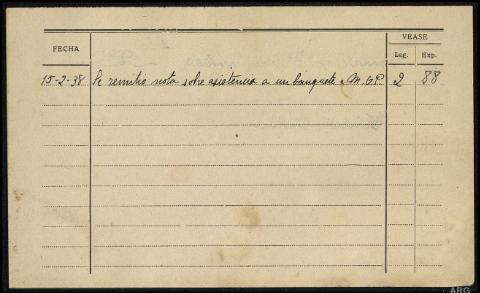 FECHA
VEASE
Leg. Exp.
15-2-38 Se remitio nota sobre asistencia a un banquete a M.G.P. 2 88
ARG